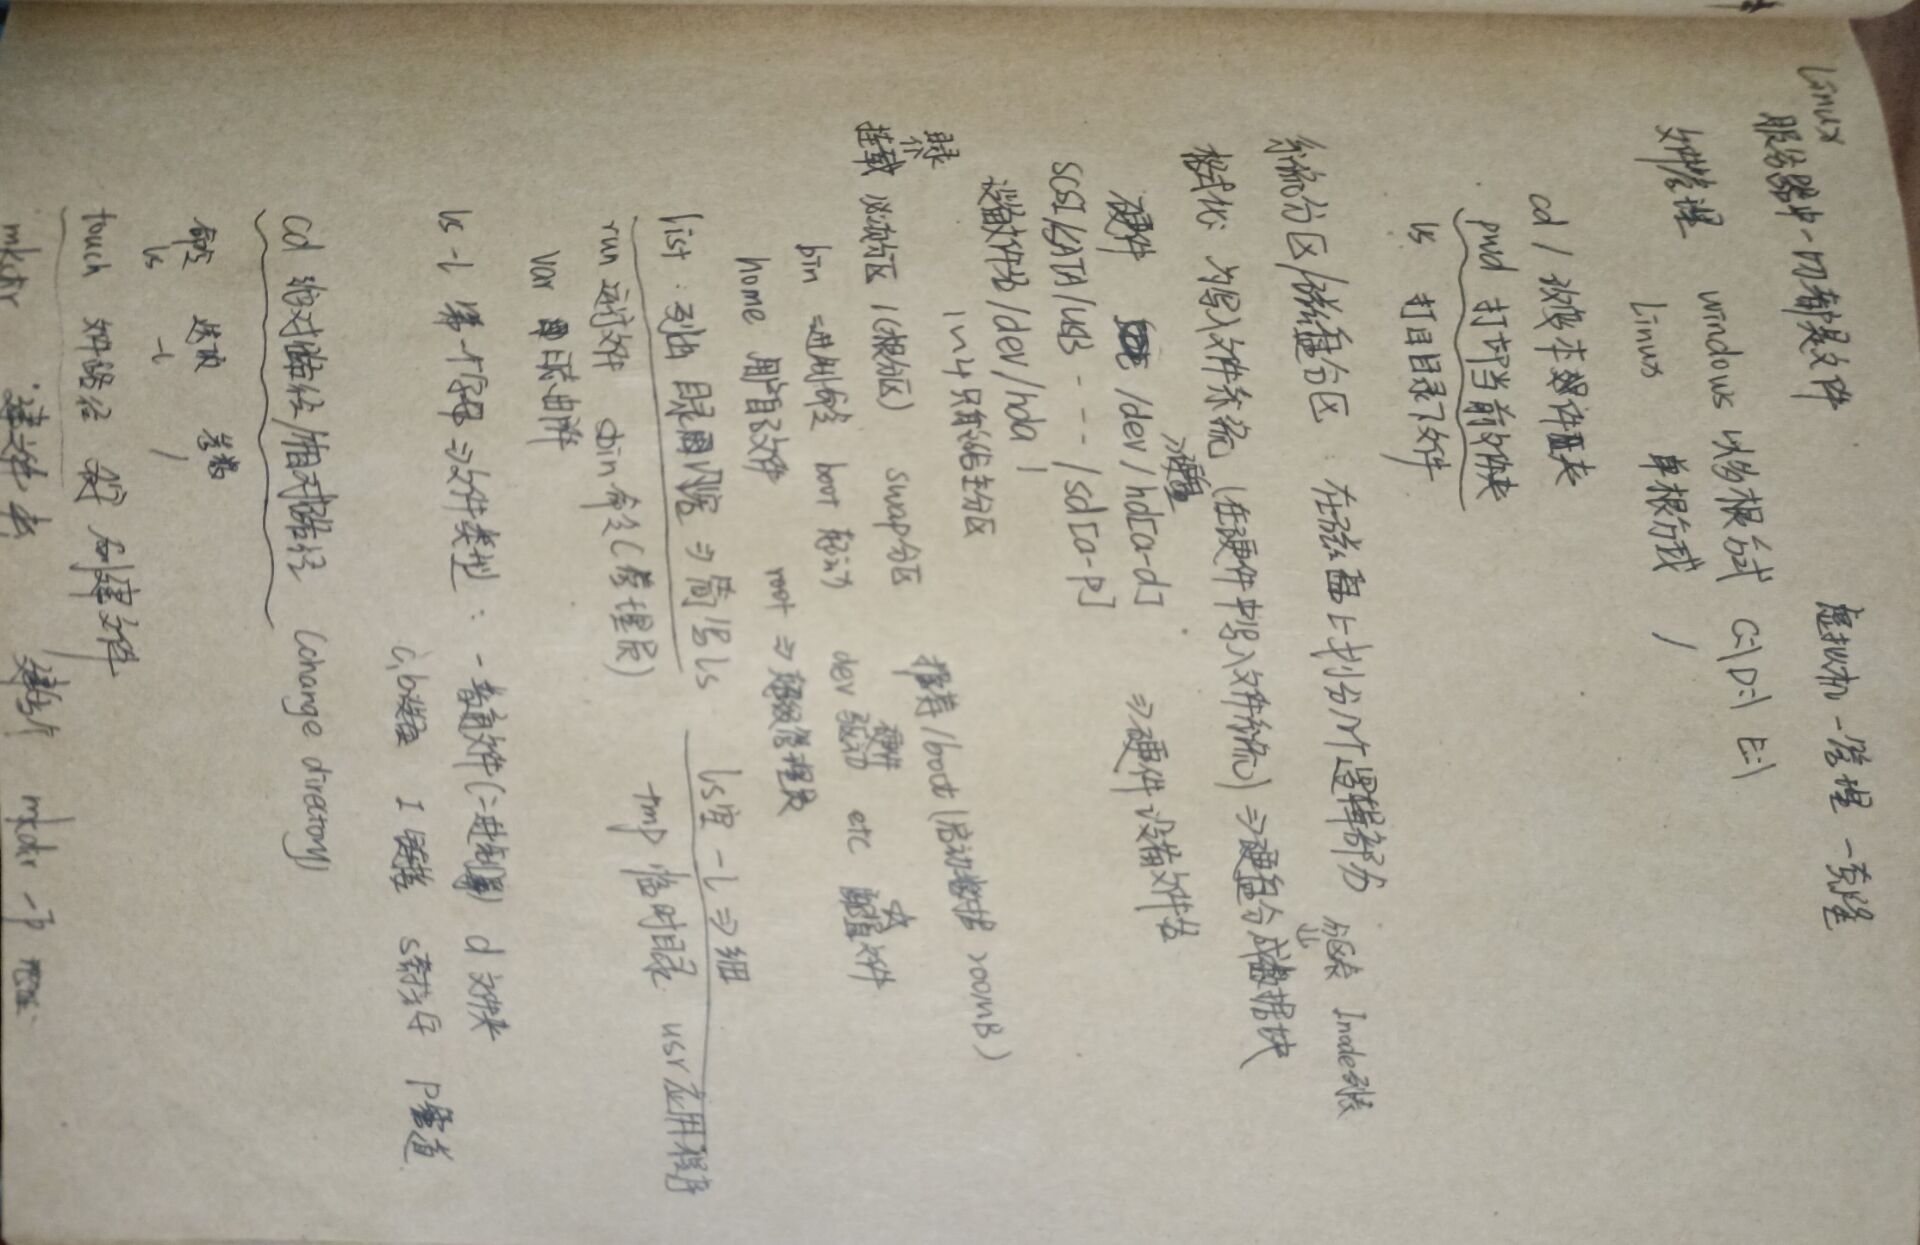 Linux
服务器中一切都是文件 虚拟机-管理-克隆
文件管理 windows 以多根方式 C:\D:\ E:\
Linux 单根方式 /
cd / 改变 文件夹
pwd 打印当前文件夹
ls 打目录下文件
系统分区/磁盘分区:在磁盘上划分几个逻辑部分 分区表 Inode列表
⇓
格式化: 为写入文件系统(在硬件中写入文件系统)⇒硬盘分成数据块
⇒硬盘
硬件 /dev/hd[a-d] ⇒硬件设备文件名
SCSI/SATA/USB - - - /sd[a-p]
设备文件名/dev/hda 1
1~4只有 主分区
目录 推荐/boot(启动数据 200MB)
⇑
挂载 必须分区 /(根分区) swap分区
硬件 ☆
bin 二进制命令 boot 启动 dev 驱动 etc 配置文件
home 用户自己文件 root ⇒超级管理员
list:列出 目录 内容 ⇒简写ls ls空 -l ⇒细
run 运行文件 sbin命令(管理员) tmp 临时目录 usr应用程序
var 日志
ls -l 第一个字母⇒文件类型: -普通文件(二进制) d 文件夹
c,b设备 l 链接 s套接字 p管道
cd 绝对路径/相对路径 (change directory)
命令 选项 参数
ls -l /
touch 文件路径 创建文件
mkdir 建文件夹 建多个 mkdir -p